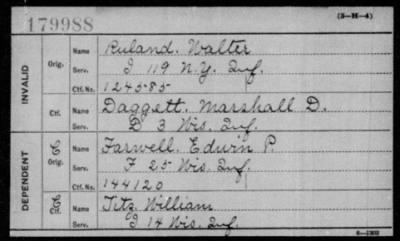 179988
(3-H-4)
INVALID
Orig.
Name Ruland. Walter
Serv. I 119 N.Y. Inf.
Ctf. No. 124585
Ctf.
Name Daggett. Marshall D.
Serv. D 3 Wis. Inf.
DEPENDENT
Orig.
Name Farwell. Edwin P.
Serv. F 25 Wis. Inf.
Ctf. No. 144120
Name Titz. William
Serv. I 14 Wis. Inf.